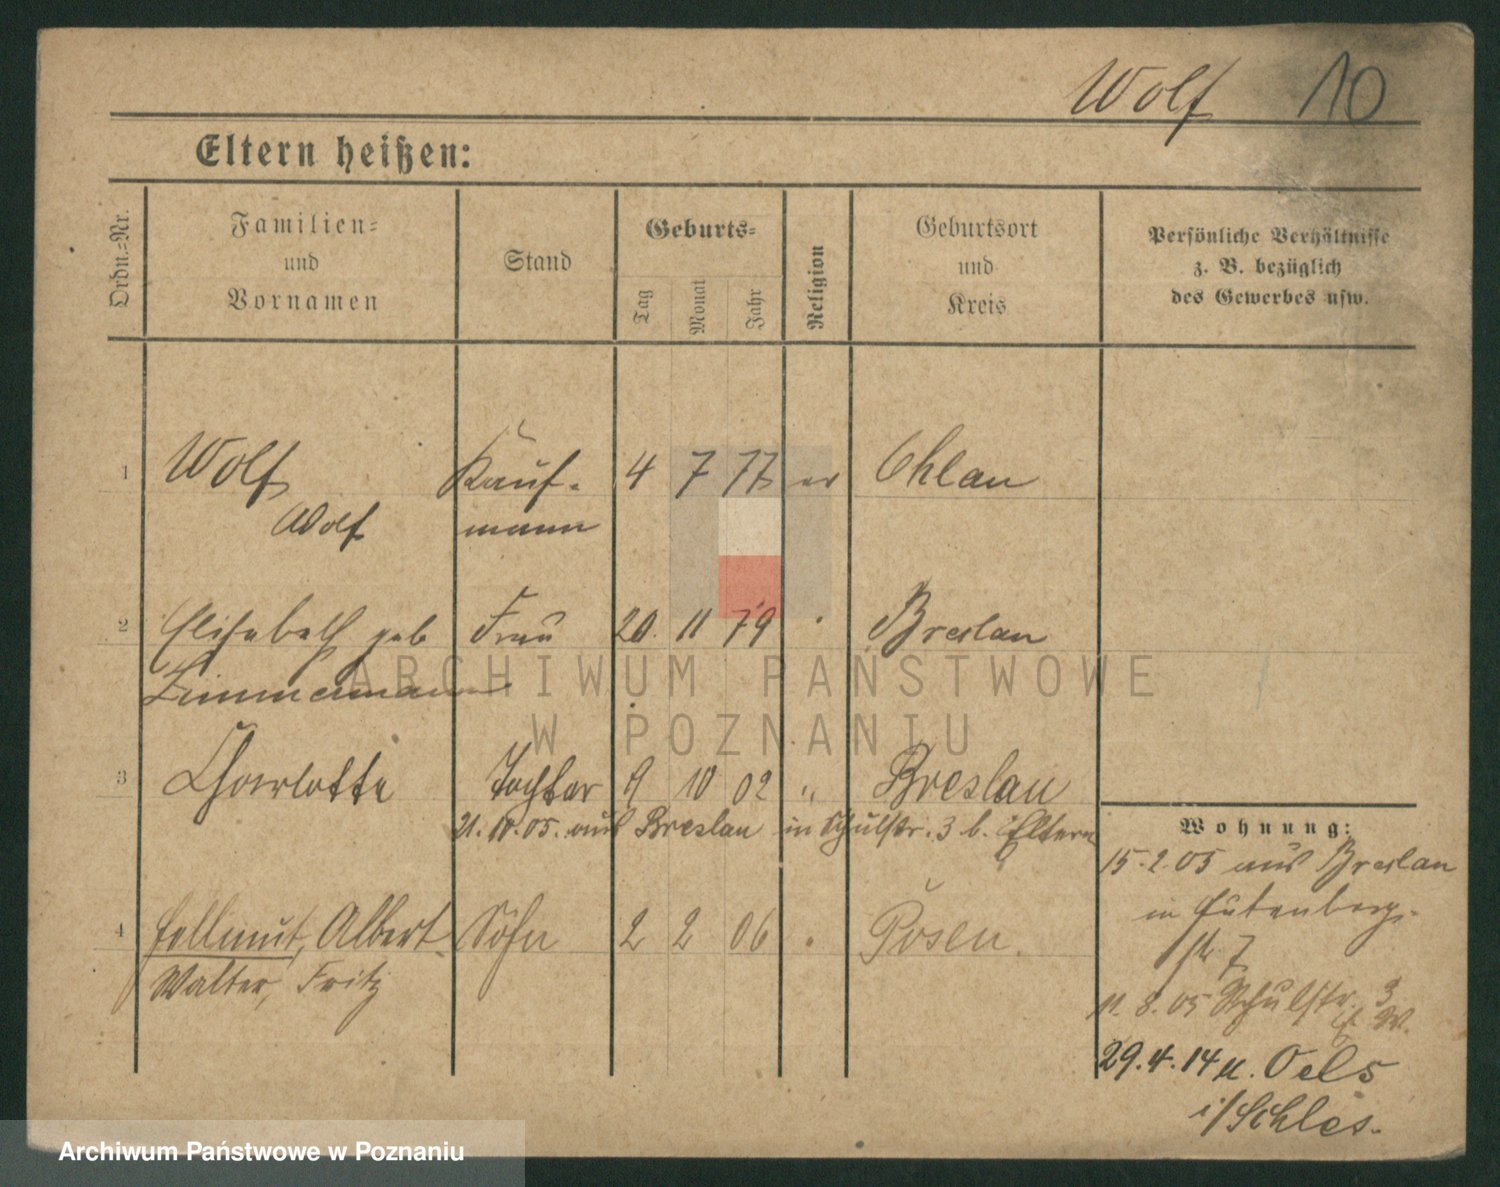 Wolf 10
Eltern heißen:
Ordn.=Nr.
Familien=
und
Vornamen
Stand
Geburts=
Tag
Monat
Jahr
Religion
Geburtsort
und
Kreis
Persönliche Verhältnisse
z. B. bezüglich
des Gewerbes usw.
1 Wolf Kauf- 4 7 77 ev Ohlau
Adolf mann
2 Elisabeth geb Frau 20. 11 79 " Breslau
Zimmermann
3 Charlotte Tochter 9 10 02 " Breslau
21. 10. 05. aus Breslau in Schulstr. 3 b. Eltern
4 Hellmut, Albert Sohn 2 2 06 " Posen.
Walter, Fritz
Wohnung:
15.2.05 aus Breslau
in Gutenberg-
str 7
11. 8. 05 Schulstr. 3
29.4.14 n. Oels
i/Schles.
ARCHIWUM PAŃSTWOWE
W POZNANIU
Archiwum Państwowe w Poznaniu